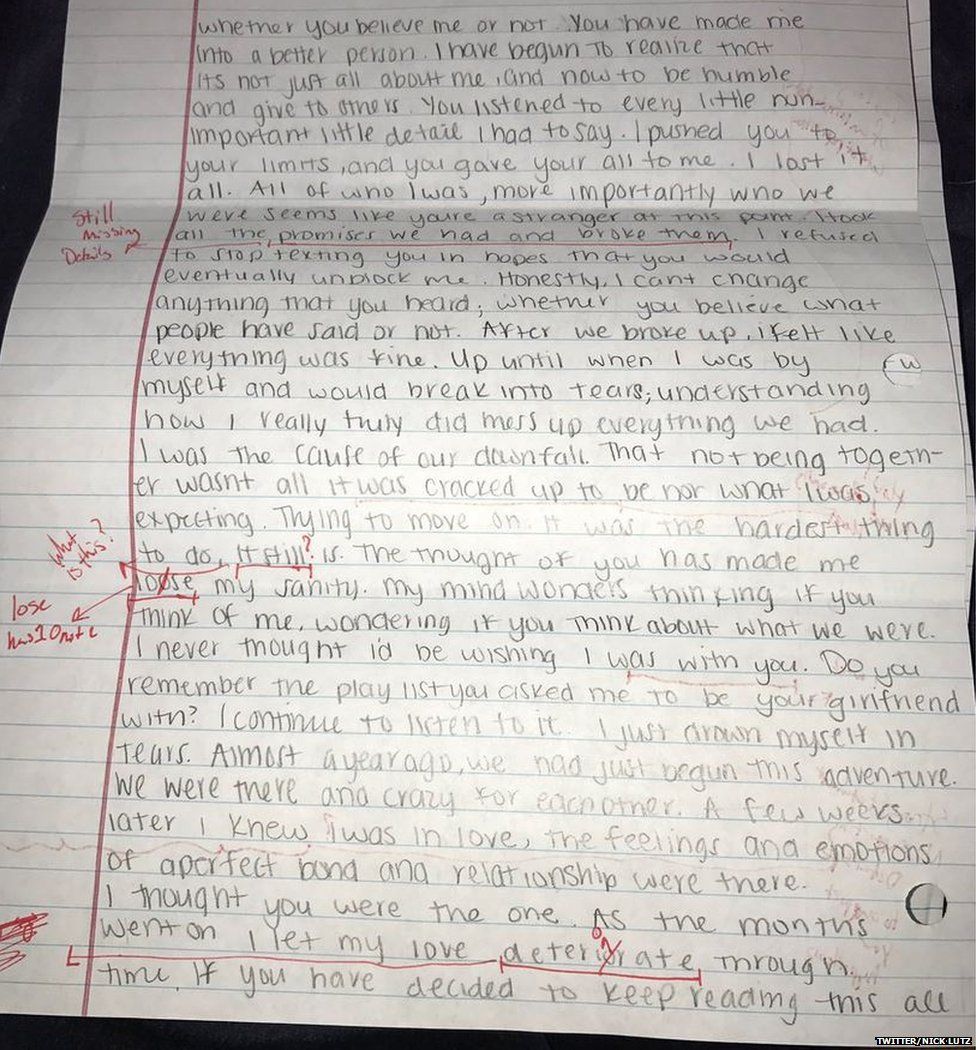 whether you believe me or not. You have made me
into a better person. I have begun to realize that
its not just all about me, and now to be humble
and give to others. You listened to every little nun-
important little detail I had to say. I pushed you to
your limits, and you gave your all to me. I lost it
all. All of who I was, more importantly who we
were seems like youre a stranger at this point. I took
Still
Missing
Details
all the promises we had and broke them. I refused
to stop texting you in hopes that you would
eventually unblock me. Honestly, I cant change
anything that you heard; whether you believe what
people have said or not. After we broke up, i felt like
everything was fine. Up until when I was by
myself and would break into tears; understanding
how I really truly did mess up everything we had.
I was the cause of our downfall. That not being togeth-
er wasnt all it was cracked up to be nor what I was
expecting. Trying to move on. It was the hardest thing
What
is this?
to do, it still? is. The thought of you has made me
loose my sanity. My mind wonders thinking if you
lose
has 1 O not 2
think of me, wondering if you think about what we were.
I never thought id be wishing I was with you. Do you
remember the play list you asked me to be your girlfriend
with? I continue to listen to it. I just drown myself in
tears. Almost a year ago, we had just begun this adventure.
We were there and crazy for eachother. A few weeks
later I knew I was in love, the feelings and emotions
of a perfect bond and relationship were there.
I thought you were the one. As the months
went on I let my love deterirate through
time. If you have decided to keep reading this all
TWITTER/NICK LUTZ